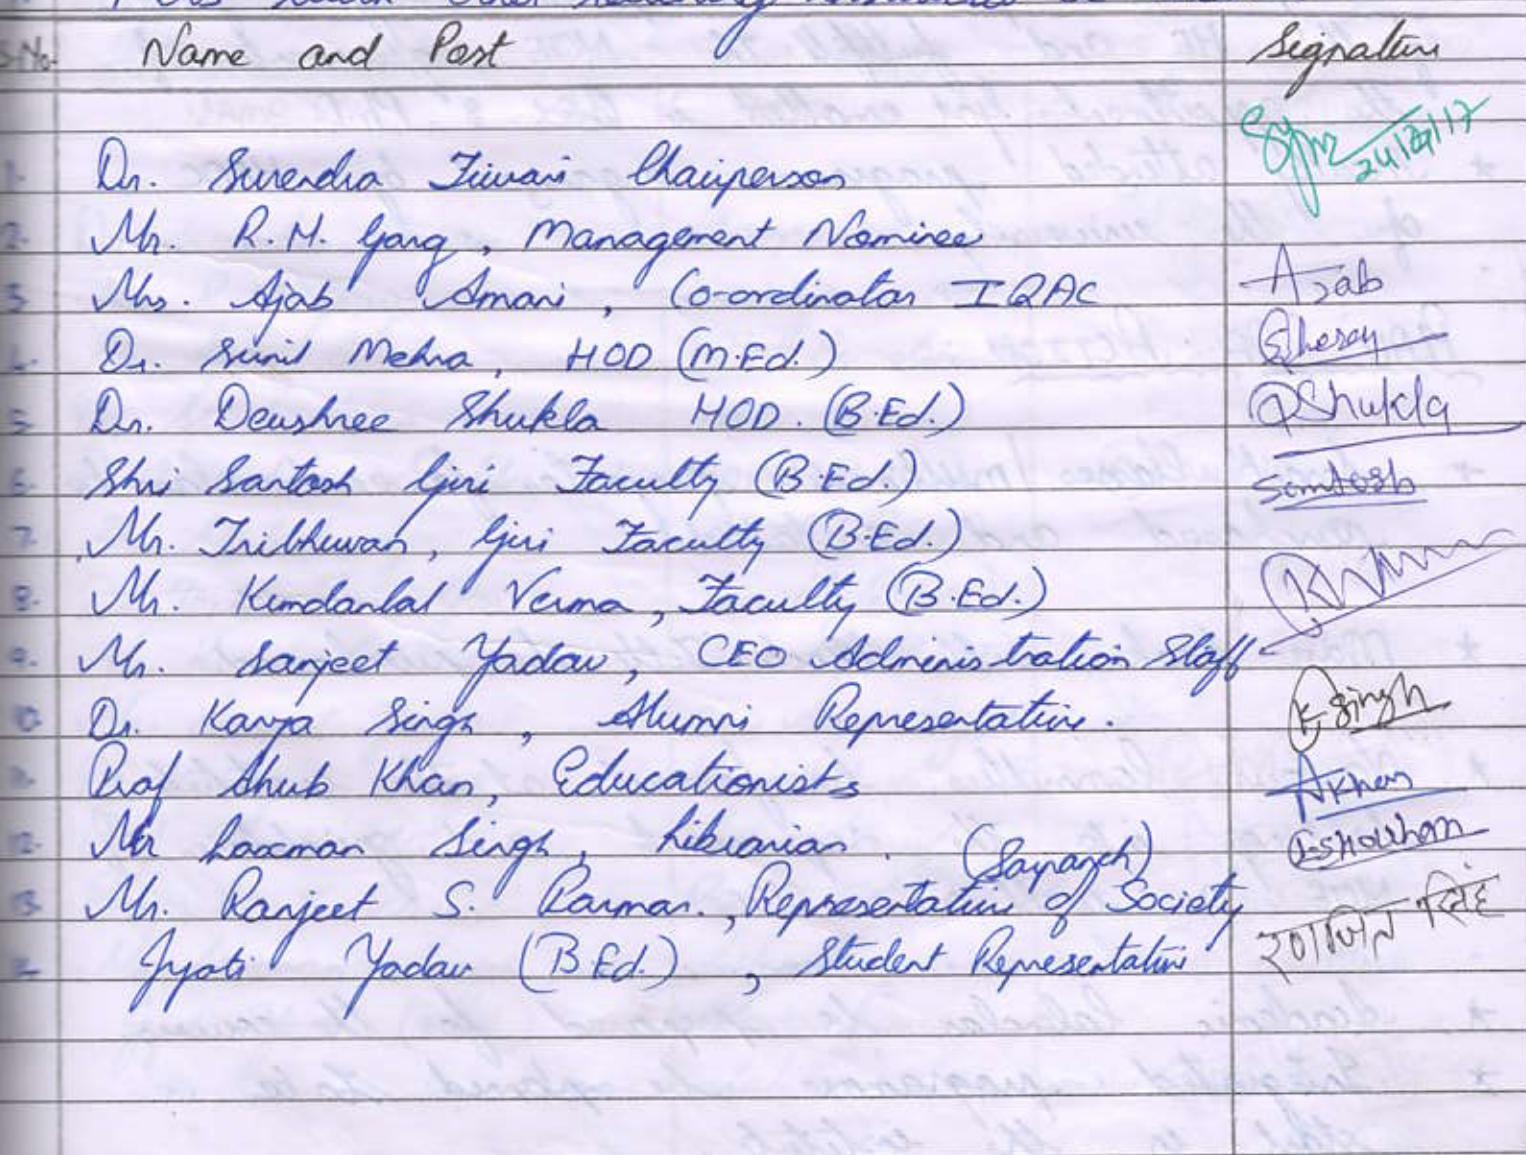 S.No. Name and Post Signature
24/8/17
1. Dr. Surendra Tiwari Chairperson
2. Mr. R.M. Garg, Management Nominee
3. Mrs. Ajab Amani, Co-ordinator IQAC Ajab
4. Dr. Sunil Mehra, HOD (M.Ed.)
5. Dr. Devshree Shukla HOD. (B.Ed.) DShukla
6. Shri Santosh Giri Faculty (B.Ed.) Santosh
7. Mr. Tribhuwan, Giri Faculty (B.Ed.)
8. Mr. Kundanlal Verma, Faculty (B.Ed.)
9. Mr. Sanjeet Yadav, CEO Administration Staff
10. Dr. Kavya Singh, Alumni Representative. K Singh
Prof Shub Khan, Educationists AKhan
12. Mr Laxman Singh, Librarian. (Sarpanch)
13. Mr. Ranjeet S. Parmar., Representative of Society
Jyoti Yadav (B.Ed.), Student Representative